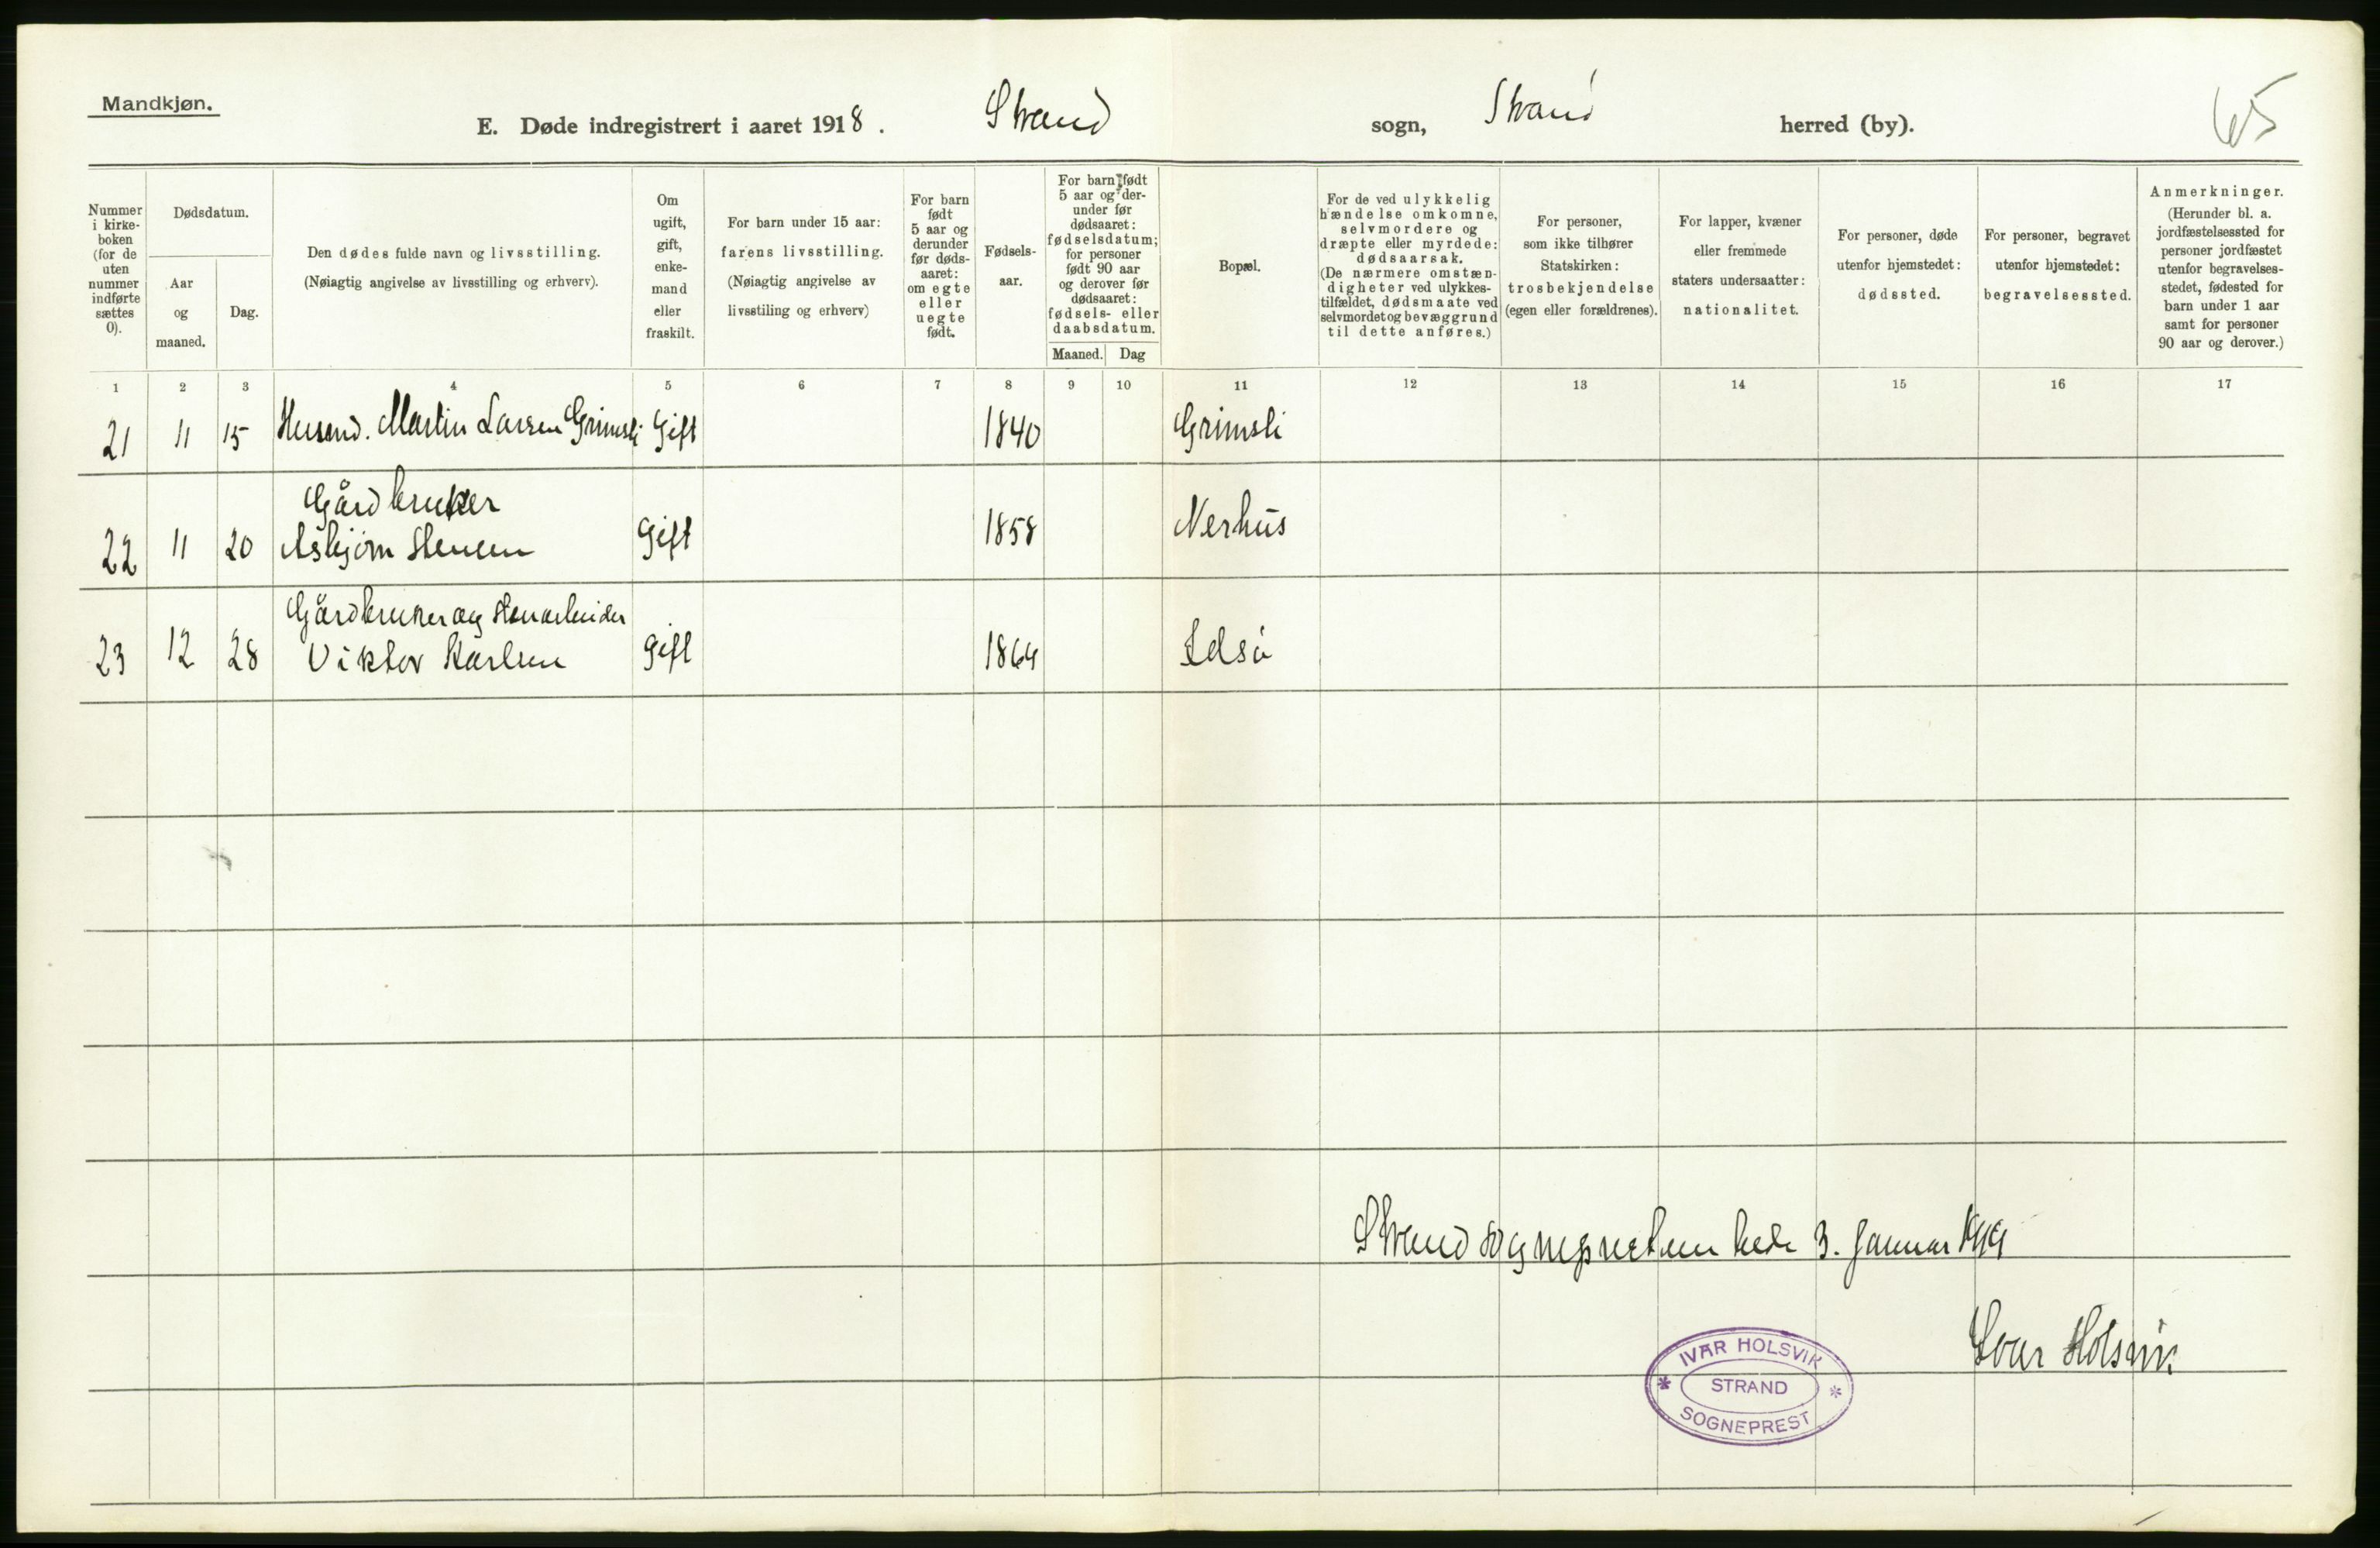 Mandkjøn.
E. Døde indregistrert i aaret 1918. Strand sogn, Strand herred (by).
65
Nummer i kirkeboken (for de uten nummer indførte sættes 0).
Dødsdatum.
Aar og maaned.
Dag.
Den dødes fulde navn og livsstilling.
(Nøiagtig angivelse av livsstilling og erhverv).
Om ugift, gift, enkemand eller fraskilt.
For barn under 15 aar:
farens livsstilling.
(Nøiagtig angivelse av livsstiling og erhverv)
For barn født 5 aar og derunder før dødsaaret: om egte eller uegte født.
Fødselsaar.
For barn født 5 aar og derunder før dødsaaret: fødselsdatum; for personer født 90 aar og derover før dødsaaret: fødsels- eller daabsdatum.
Maaned. Dag
Bopæl.
For de ved ulykkelig hændelse omkomne, selvmordere og dræpte eller myrdede: dødsaarsak.
(De nærmere omstændigheter ved ulykkestilfældet, dødsmaate ved selvmordet og bevæggrund til dette anføres.)
For personer, som ikke tilhører Statskirken: trosbekjendelse (egen eller forældrenes).
For lapper, kvæner eller fremmede staters undersaatter: nationalitet.
For personer, døde utenfor hjemstedet: dødssted.
For personer, begravet utenfor hjemstedet: begravelsessted.
Anmerkninger.
(Herunder bl. a. jordfæstelsessted for personer jordfæstet utenfor begravelsesstedet, fødested for barn under 1 aar samt for personer 90 aar og derover.)
1 2 3 4 5 6 7 8 9 10 11 12 13 14 15 16 17
21 11 15 Husmd. Martin Larsen Grimsli Gift 1840 Grimsli
Gårdbruker
22 11 20 Asbjørn Stensen Gift 1858 Nerhus
Gårdbruker og Stenarbeider
23 12 28 Viktor Karlsen Gift 1864 Idsø
Strand sogneprestembede 3. Januar 1919
Ivar Holsvik
IVAR HOLSVIK
* STRAND *
SOGNEPREST